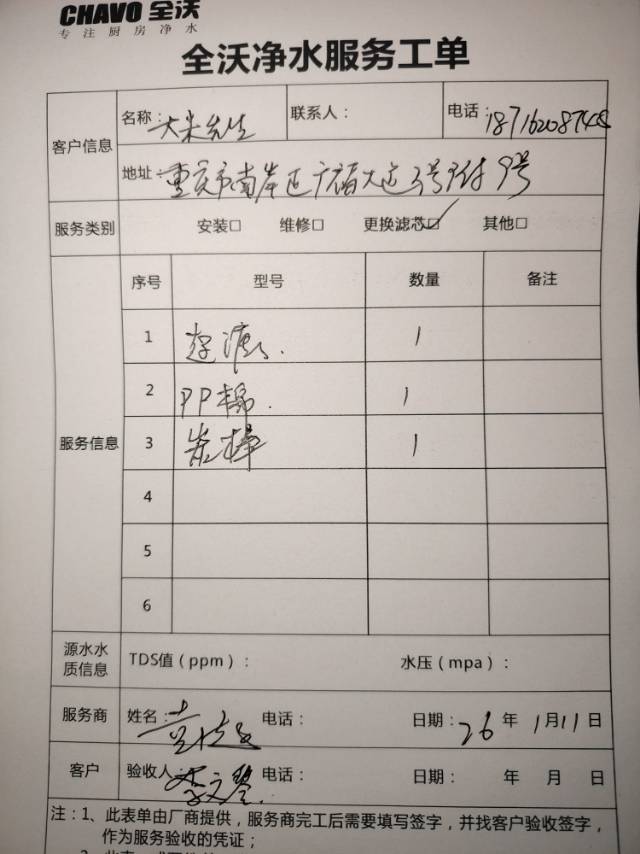 CHAVO 全沃
专注厨房净水
全沃净水服务工单
客户信息 名称: 大米先生 联系人: 电话: 18716208748
地址: 重庆市南岸区广福大道3号附9号
服务类别 安装□ 维修□ 更换滤芯☑ 其他□
序号 型号 数量 备注
服务信息
1 超滤 1
2 PP棉 1
3 炭棒 1
4
5
6
源水水质信息 TDS值(ppm): 水压(mpa):
服务商 姓名: 电话: 日期: 26年1月11日
客户 验收人: 李文 电话: 日期: 年 月 日
注:1、此表单由厂商提供,服务商完工后需要填写签字,并找客户验收签字,
作为服务验收的凭证;